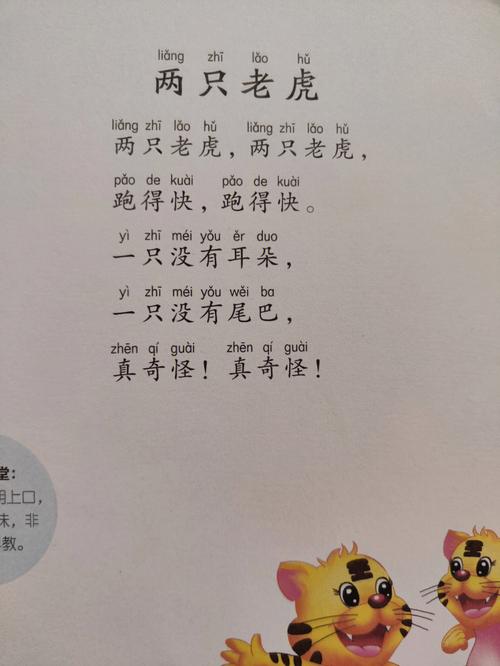 liǎng zhī lǎo hǔ
两只老虎
liǎng zhī lǎo hǔ liǎng zhī lǎo hǔ
两只老虎，两只老虎，
pǎo de kuài pǎo de kuài
跑得快，跑得快。
yì zhī méi yǒu ěr duo
一只没有耳朵，
yì zhī méi yǒu wěi ba
一只没有尾巴，
zhēn qí guài zhēn qí guài
真奇怪！真奇怪！
堂：
上口，
味，非
教。